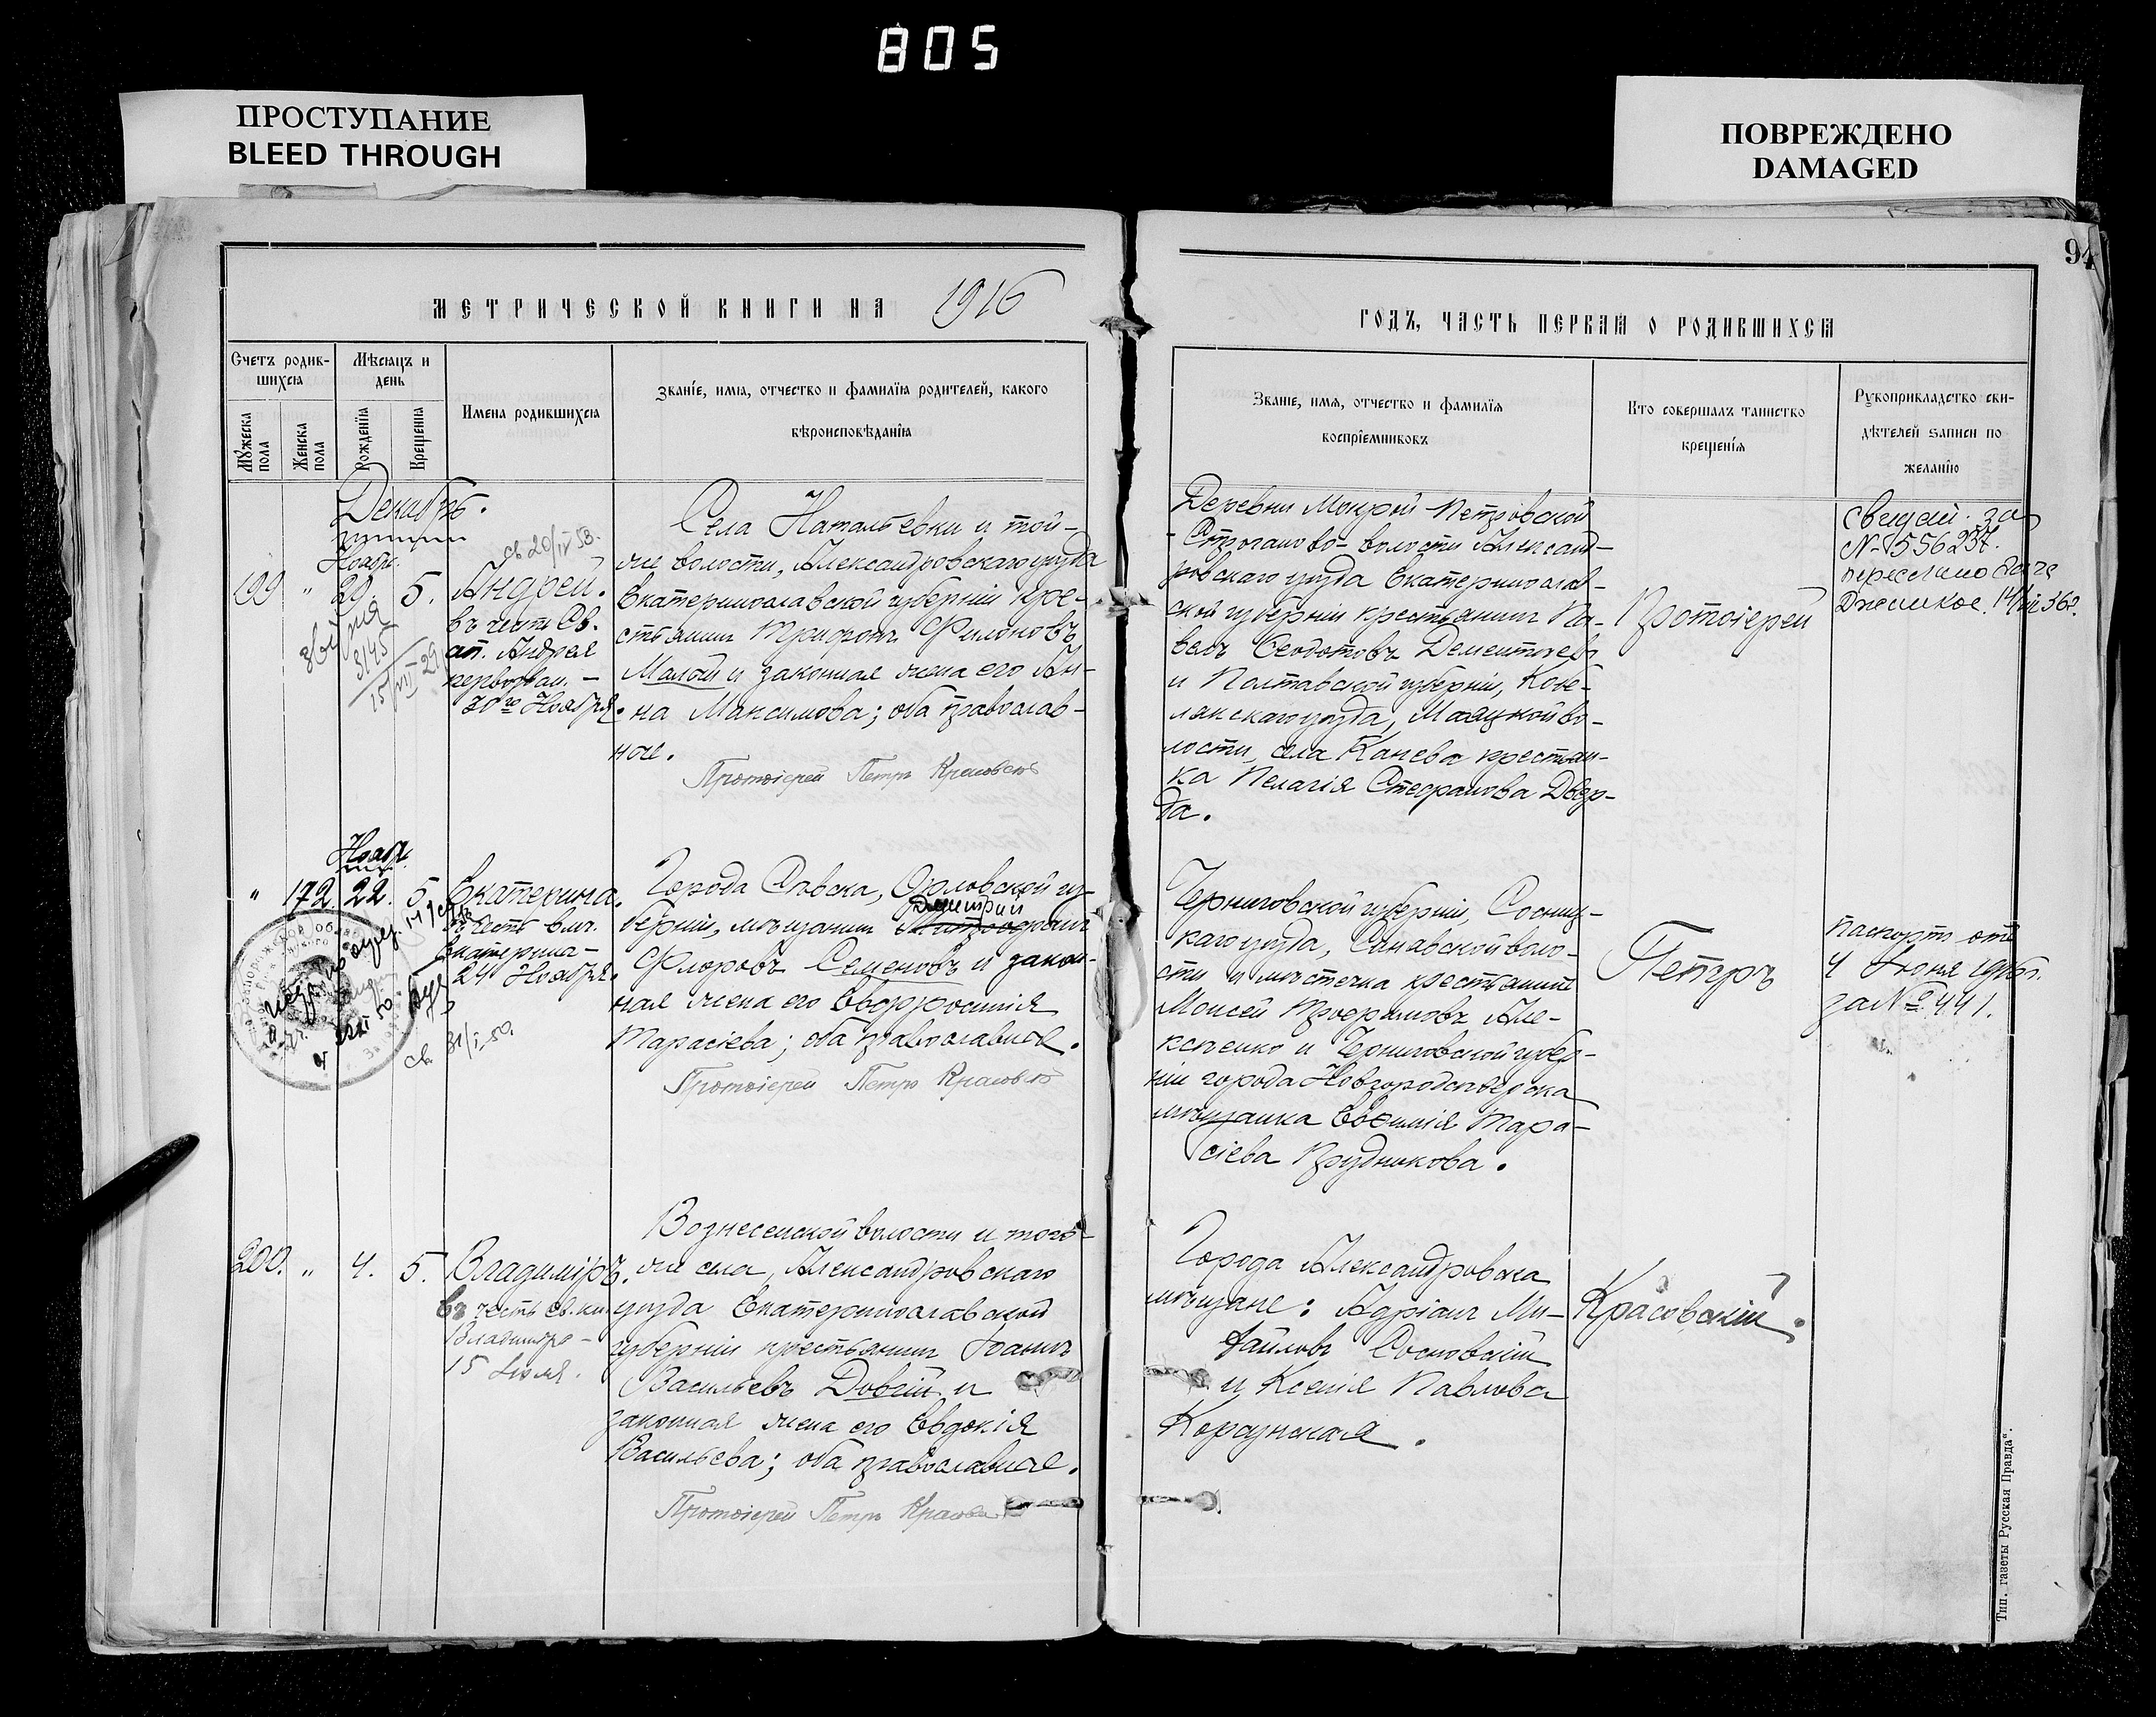 805
ПРОСТУПАНИЕ
BLEED THROUGH
ПОВРЕЖДЕНО
DAMAGED
94
МЕТРИЧЕСКОЙ КНИГИ НА 1916
ГОДЪ, ЧАСТЬ ПЕРВАЯ О РОДИВШИХСЯ
Счетъ родив-
шихся
Мѣсяцъ и
день
Мужеска
пола
Женска
пола
Рожденія
Крещенія
Имена родившихся
Званіе, имя, отчество и фамилія родителей, какого
вѣроисповѣданія
Званіе, имя, отчество и фамилія
воспріемниковъ
Кто совершалъ таинство
крещенія
Рукоприкладство сви-
дѣтелей записи по
желанію
Декабрь.
Ноябр.
199 " 29. 5. Андрей.
св 20/IV 53.
въ честь Св.
ап. Андрея
первозван. –
30го Ноября.
3145
15/III–29
Села Натальевки и той-
же волости, Александровскаго уѣзда
Екатеринославской губерніи кре-
стьянинъ Трифонъ Филоновъ
Малый и законная жена его Ан-
на Максимова; оба православ-
ные.
Протоіерей Петръ Красовскій
Деревни Мокрой Петровской
Строганово-волости Александ-
ровскаго уѣзда Екатеринослав-
ской губерніи крестьянинъ Па-
велъ Ѳеодотовъ Дементьевъ
и Полтавской губерніи, Кобе-
лякскаго уѣзда, Маяцкой во-
лости, села Канева крестьян-
ка Пелагія Стефанова Двер-
да.
Протоіерей
Свидѣт. за
№ 556237.
переслано
14/VII 36г.
Ноябр.
" 172. 22. 5. Екатерина.
въ честь вмч.
Екатерины –
24 Ноября.
св. 31/I–50.
Города Сѣвска, Орловской гу-
Димитрій
берніи, мѣщанинъ
Флоровъ Семеновъ и закон-
ная жена его Евфросинія
Тарасіева; оба православные.
Протоіерей Петръ Красовскій
Черниговской губерніи, Сосниц-
каго уѣзда, Синявской воло-
сти и мѣстечка крестьянинъ
Моисей Трофимовъ Але-
ксѣенко и Черниговской губер-
ніи города Новгородсѣверска
мѣщанка Евѳимія Тара-
сіева Прудникова.
Петръ
паспортъ отъ
4 Іюня 1916г.
за № 441.
200. " 4. 5. Владиміръ.
въ честь св. кн.
Владиміра –
15 Іюля.
Вознесенской волости и того-
же села, Александровскаго
уѣзда Екатеринославской
губерніи крестьянинъ Іоаннъ
Васильевъ Довгій и
законная жена его Евдокія
Васильева; оба православные.
Протоіерей Петръ Красовскій
Города Александровска
мѣщане: Адріанъ Ми-
хайловъ Сосновскій
и Ксенія Павлова
Корсунская.
Красовскій.
Тип. газеты „Русская Правда“.